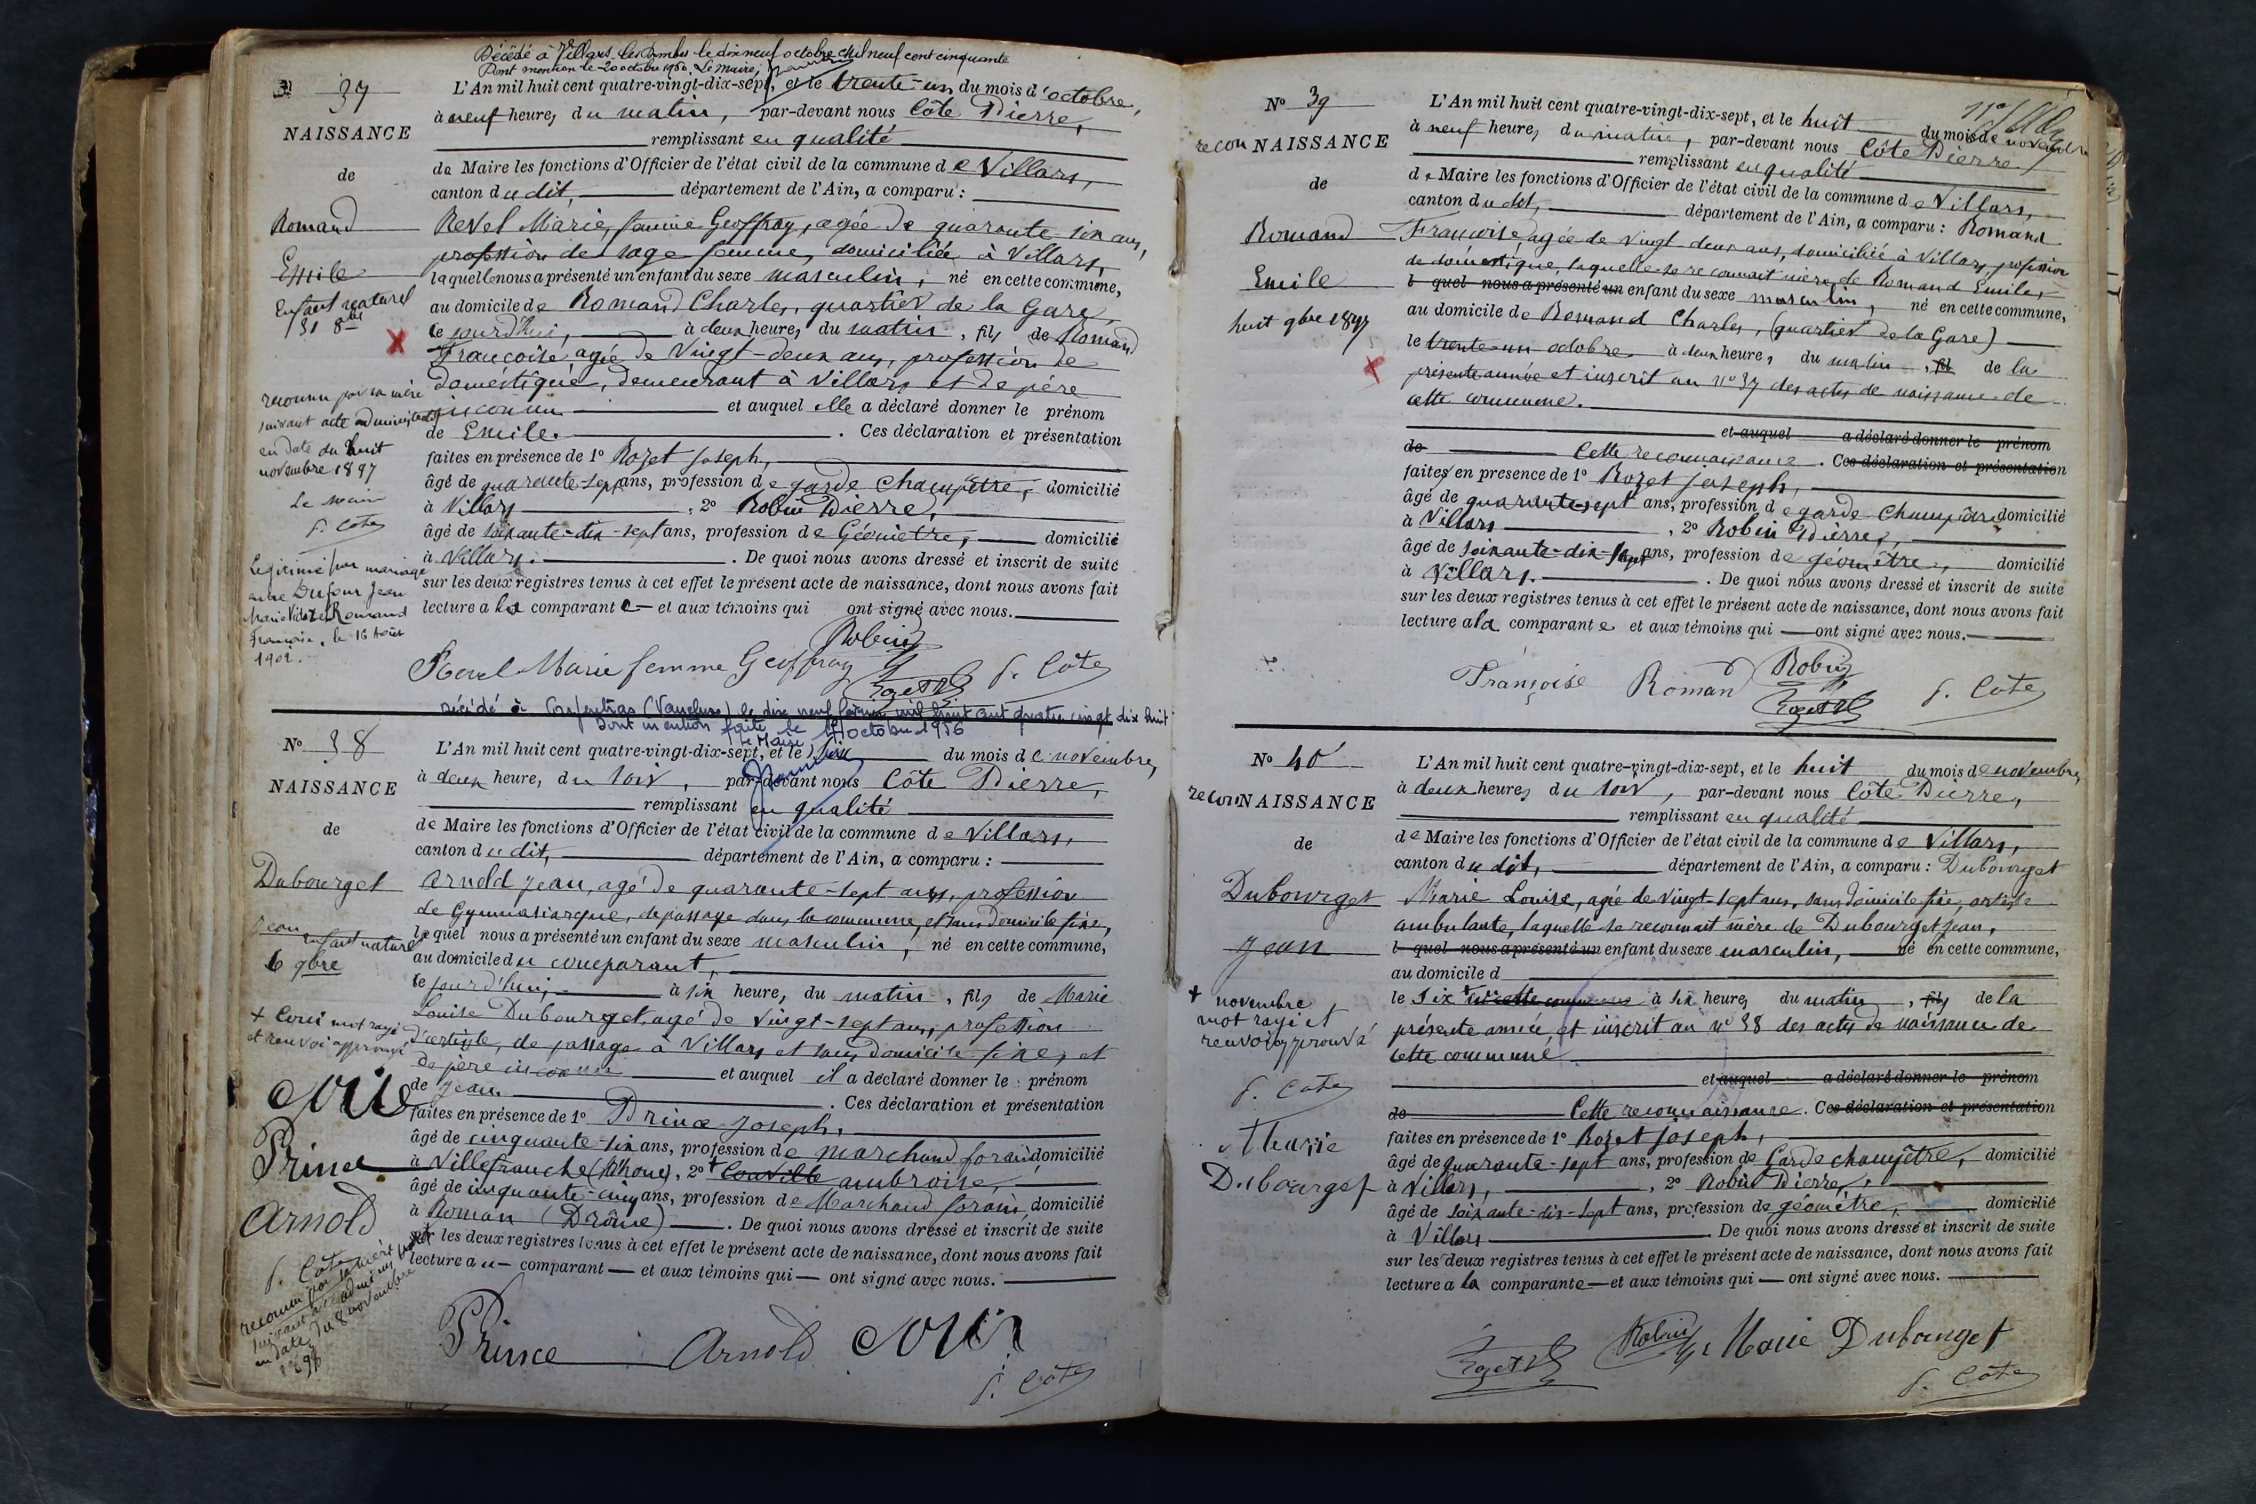 Décédé à Villars les Dombes le dix neuf octobre mil neuf cent cinquante
Dont mention le 20 octobre 1950. Le Maire,
No 37
NAISSANCE
de
Romand
Emile
Enfant naturel
31 8bre
reconnu par sa mère
suivant acte administratif
en date du huit
novembre 1897
Le maire
P. Côte
Légitimé par mariage
entre Dufour Jean
Marie Victor et Romand
Françoise, le 16 Août
1902.
L'An mil huit cent quatre-vingt-dix-sept, et le trente-un du mois d'octobre,
à neuf heures du matin, par-devant nous Côte Pierre,
remplissant en qualité
de Maire les fonctions d'Officier de l'état civil de la commune de Villars,
canton dudit, département de l'Ain, a comparu :
Revel Marie, femme Geoffray, agée de quarante-six ans,
profession de sage femme, domiciliée à Villars,
laquelle nous a présenté un enfant du sexe masculin, né en cette commune,
au domicile de Romand Charles, quartier de la Gare,
le jourd'hui, à deux heures du matin, fils de Romand
Françoise agée de Vingt-deux ans, profession de
domestique, demeurant à Villars et de père
inconnu et auquel elle a déclaré donner le prénom
de Emile. Ces déclaration et présentation
faites en présence de 1° Rozet Joseph,
âgé de quarante-sept ans, profession de garde champêtre, domicilié
à Villars, 2° Robin Pierre,
âgé de soixante-dix-sept ans, profession de Géomètre, domicilié
à Villars. De quoi nous avons dressé et inscrit de suite
sur les deux registres tenus à cet effet le présent acte de naissance, dont nous avons fait
lecture à la comparante et aux témoins qui ont signé avec nous.
Robin
Revel Marie femme Geoffray
Rozet
P. Côte
décédé à Carpentras (Vaucluse) le dix neuf mil huit cent quatre vingt dix huit
Dont mention faite le octobre 1956
Le Maire
No 38
NAISSANCE
de
Dubourget
Jean
enfant naturel
6 9bre
+ mot rayé
et renvoi approuvé
Prince
Arnold
P. Côte
reconnu par sa mère
suivant acte administratif
en date du 8 novembre
1897
L'An mil huit cent quatre-vingt-dix-sept, et le six du mois de novembre,
à deux heure, du soir, par-devant nous Côte Pierre,
remplissant en qualité
de Maire les fonctions d'Officier de l'état civil de la commune de Villars,
canton dudit, département de l'Ain, a comparu :
Arnold Jean, agé de quarante-sept ans, profession
de Gymnasiarque, de passage dans la commune, et sans domicile fixe,
lequel nous a présenté un enfant du sexe masculin, né en cette commune,
au domicile du comparant,
le jourd'hui, à six heure, du matin, fils de Marie
Louise Dubourget, agé de vingt-sept ans, profession
d'artiste, de passage à Villars et sans domicile fixe, et
de père inconnu et auquel il a déclaré donner le prénom
de Jean. Ces déclaration et présentation
faites en présence de 1° Prince Joseph,
âgé de cinquante-six ans, profession de marchand forain domicilié
à Villefranche (Rhone), 2° + Couville ambroise,
âgé de cinquante-cinq ans, profession de Marchand forain, domicilié
à Roman (Drôme). De quoi nous avons dressé et inscrit de suite
sur les deux registres tenus à cet effet le présent acte de naissance, dont nous avons fait
lecture au comparant et aux témoins qui ont signé avec nous.
Prince Arnold
P. Côte
No 39
reconNAISSANCE
de
Romand
Emile
huit 9bre 1897
L'An mil huit cent quatre-vingt-dix-sept, et le huit du mois de novembre
à neuf heure, du matin, par-devant nous Côte Pierre,
remplissant en qualité
de Maire les fonctions d'Officier de l'état civil de la commune de Villars,
canton dudit, département de l'Ain, a comparu : Romand
Françoise, agée de vingt-deux ans, domiciliée à Villars, profession
de domestique, laquelle se reconnait mère de Romand Emile,
l quel nous a présenté un enfant du sexe masculin, né en cette commune,
au domicile de Romand Charles, (quartier de la Gare)
le trente-un octobre à deux heure, du matin, fil de la
présente année et inscrit au n° 37 des actes de naissance de
cette commune.
et auquel a déclaré donner le prénom
de Cette reconnaissance. Ces déclaration et présentation
faites en présence de 1° Rozet Joseph,
âgé de quarante-sept ans, profession de garde champêtre domicilié
à Villars, 2° Robin Pierre,
âgé de soixante-dix-sept ans, profession de géomètre, domicilié
à Villars. De quoi nous avons dressé et inscrit de suite
sur les deux registres tenus à cet effet le présent acte de naissance, dont nous avons fait
lecture à la comparante et aux témoins qui ont signé avec nous.
Françoise Romand
Robin
Rozet
P. Côte
No 40
reconNAISSANCE
de
Dubourget
Jean
+ novembre
mot rayé et
renvoi approuvé
P. Côte
Marie
Dubourget
L'An mil huit cent quatre-vingt-dix-sept, et le huit du mois de novembre,
à deux heures du soir, par-devant nous Côte Pierre,
remplissant en qualité
de Maire les fonctions d'Officier de l'état civil de la commune de Villars,
canton dudit, département de l'Ain, a comparu : Dubourget
Marie Louise, agée de vingt-sept ans, sans domicile fixe, artiste
ambulante, laquelle se reconnait mère de Dubourget Jean,
l quel nous a présenté un enfant du sexe masculin, né en cette commune,
au domicile d
le six + à six heures du matin, fils de la
présente année, et inscrit au n° 38 des actes de naissance de
cette commune
et auquel a déclaré donner le prénom
de Cette reconnaissance. Ces déclaration et présentation
faites en présence de 1° Rozet Joseph,
âgé de quarante-sept ans, profession de Garde champêtre, domicilié
à Villars, 2° Robin Pierre,
âgé de soixante-dix-sept ans, profession de géomètre, domicilié
à Villars De quoi nous avons dressé et inscrit de suite
sur les deux registres tenus à cet effet le présent acte de naissance, dont nous avons fait
lecture à la comparante et aux témoins qui ont signé avec nous.
Rozet
Robin
Marie Dubourget
P. Côte